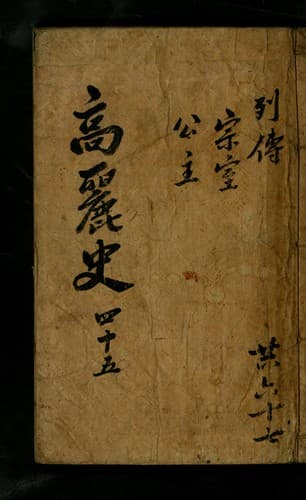 列傳
宗室
公主
高麗史 四十五
共六十七